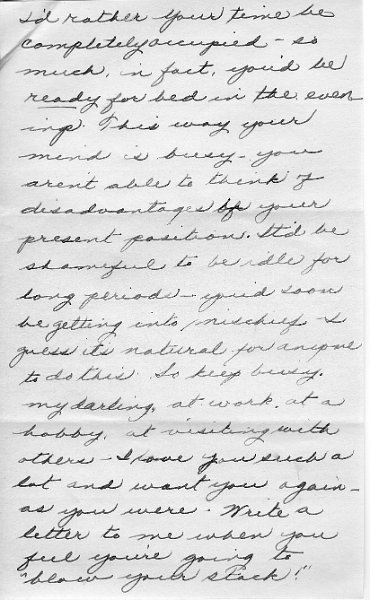 I'd rather your time be
completely occupied - so
much, in fact, you'd be
ready for bed in the even
ing. This way your
mind is busy - you
aren't able to think of
disadvantages of your
present position. It'd be
shameful to be idle for
long periods - you'd soon
be getting into mischief. I
guess its natural for anyone
to do this. So keep busy,
my darling, at work, at a
hobby, at visiting with
others - I love you such a
lot and want you again -
as you were. Write a
letter to me when you
feel you're going to
"blow your stack!"